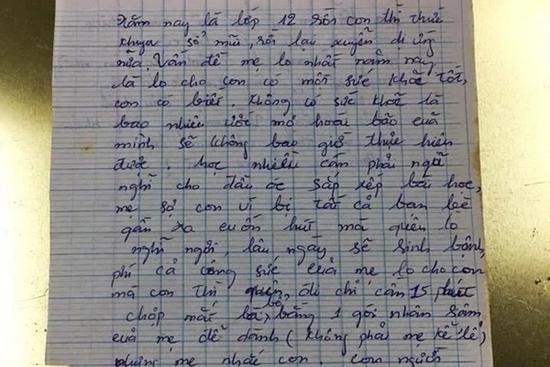 Năm nay là lớp 12 rồi con thì thức
khuya sổ mũi, rồi lại xuyễn dị ứng
nữa. Vấn đề mẹ lo nhất năm nay
là lo cho con có một sức khoẻ tốt,
con có biết. Không có sức khoẻ là
bao nhiêu ước mơ hoài bão của
mình sẽ không bao giờ thực hiện
được. học nhiều cần phải ngủ
nghỉ cho đầu óc sắp xếp bài học,
mẹ sợ con vì bị tất cả bạn bè
gần xa cuốn hút mà quên lo
nghỉ ngơi, lâu ngày sẽ sinh bệnh,
phí cả công sức của mẹ lo cho con
mà con thì quên, đi chỉ cần 15 phút
chợp mắt là bằng bổ 1 gói nhân sâm
của mẹ để dành (không phải mẹ kể lể)
nhưng mẹ nhắc con. con người